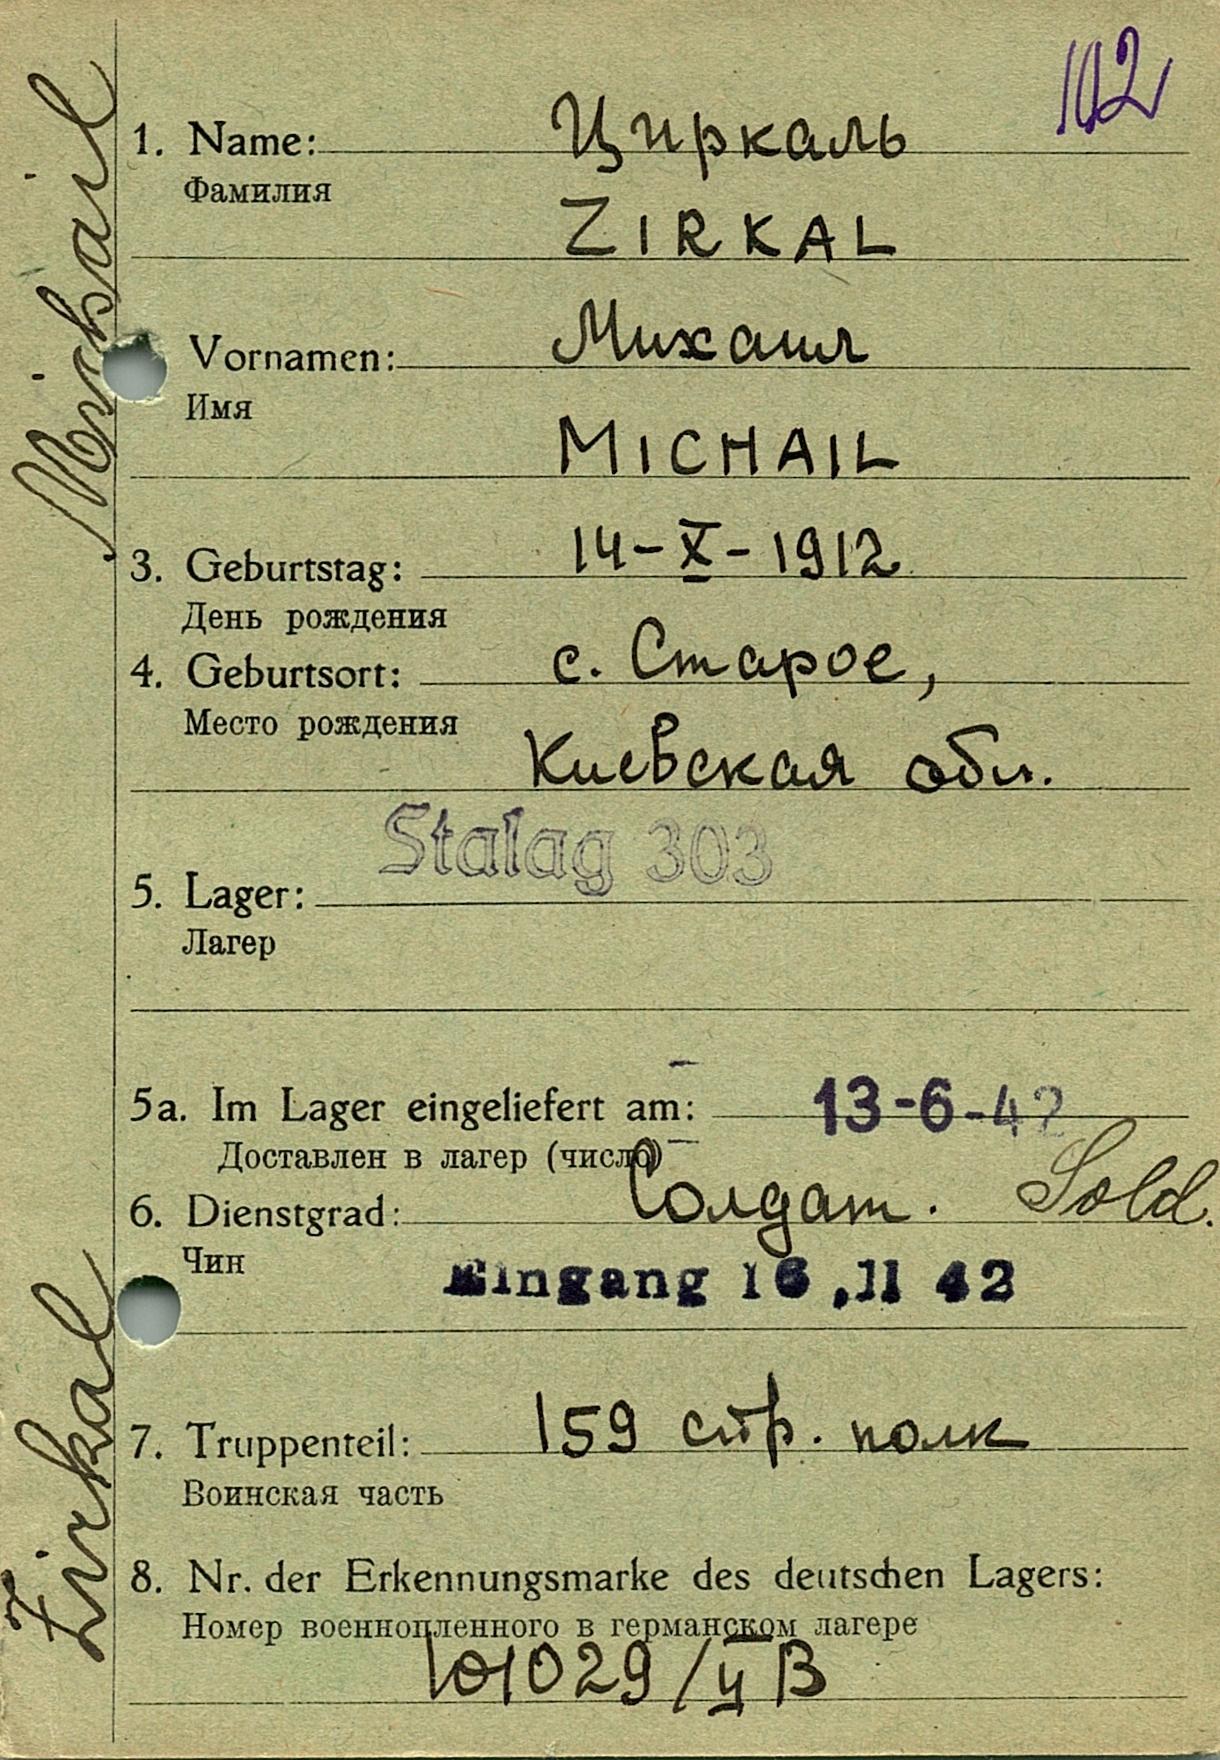 102
1. Name: Циркаль
Фамилия
ZIRKAL
Vornamen: Михаил
Имя
MICHAIL
3. Geburtstag: 14-X-1912
День рождения
4. Geburtsort: с. Старое,
Место рождения
Киевская обл.
Stalag 303
5. Lager:
Лагер
5a. Im Lager eingeliefert am: 13-6-42
Доставлен в лагер (число)
6. Dienstgrad: Солдат. Sold.
Чин
Eingang 16.11 42
7. Truppenteil: 159 стр. полк
Воинская часть
8. Nr. der Erkennungsmarke des deutschen Lagers:
Номер военнопленного в германском лагере
101029/II B
Zirkal Michail